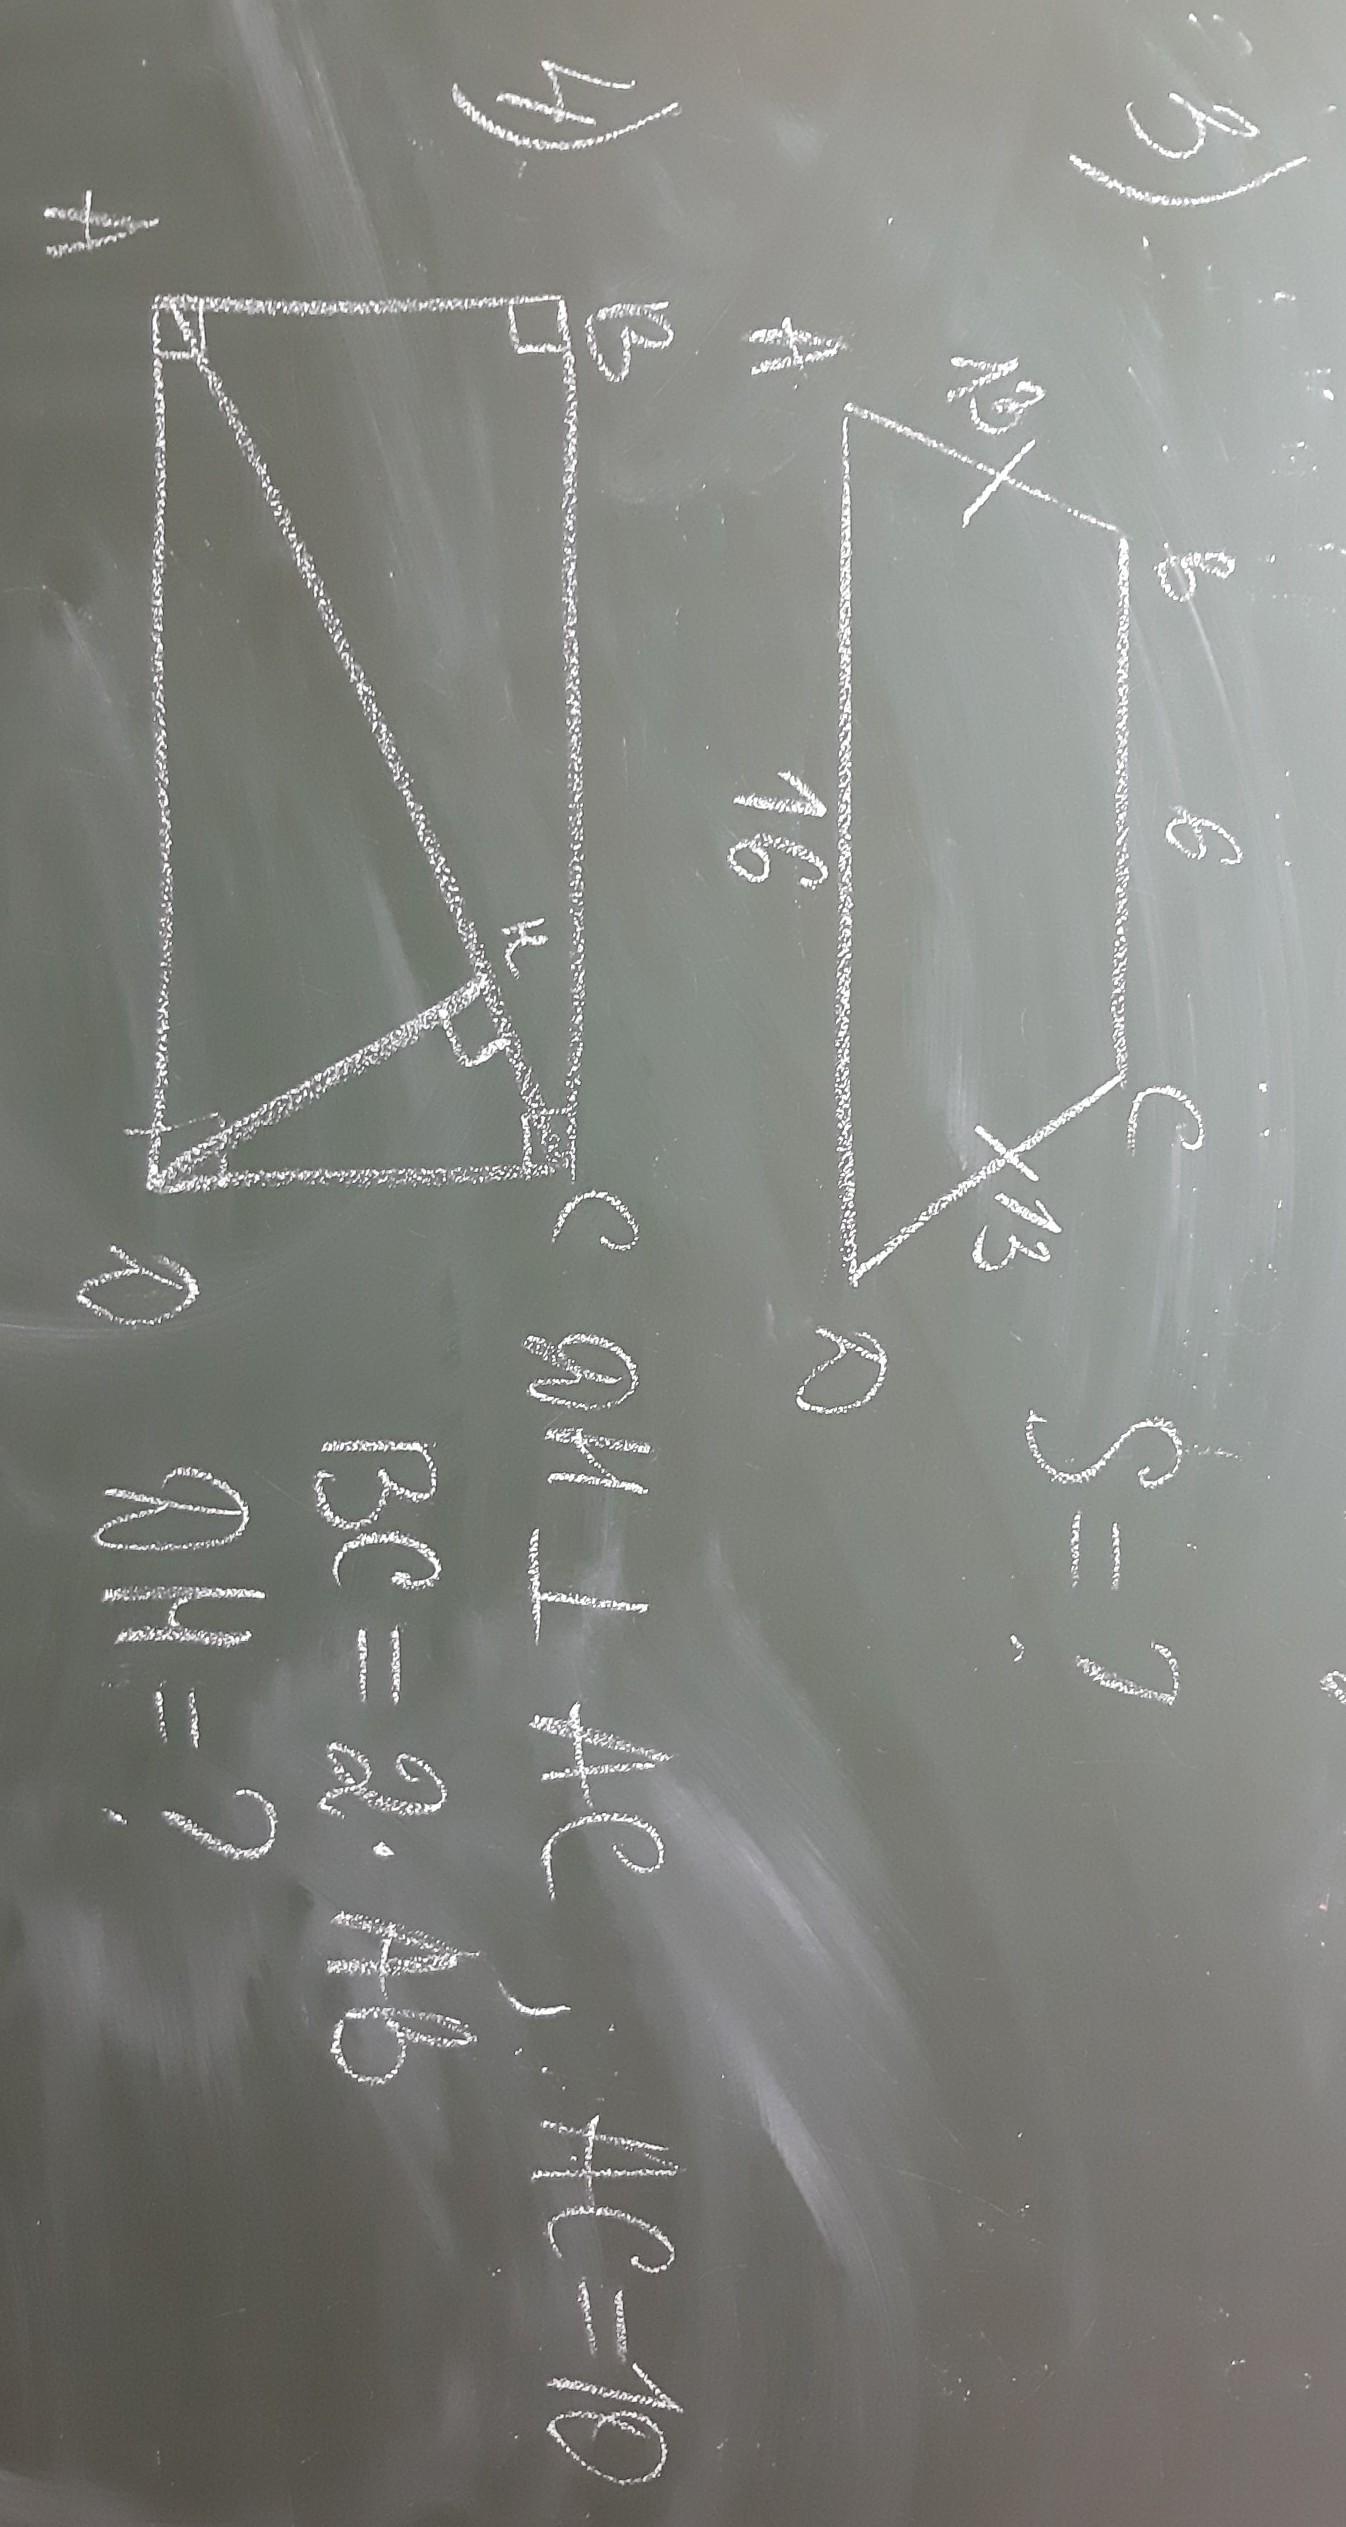 3)
B 6 C
13 13 S = ?
A 16 D
4)
B C
H
A D
DH ⊥ AC, AC = 10
BC = 2 · AB
DH = ?